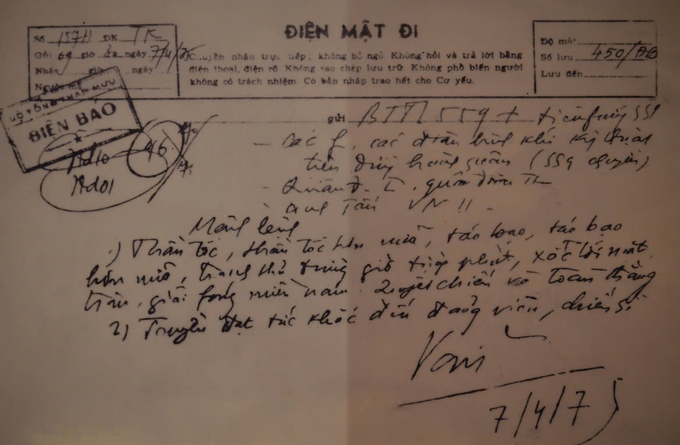 ĐIỆN MẬT ĐI
Số 157H ĐK TK
Gửi giờ ngày 7/4/75
Nhận giờ ngày
Người mã
Chuyển nhận trực tiếp, không bỏ ngỏ. Không hỏi và trả lời bằng
điện thoại, điện rõ. Không sao chép lưu trữ. Không phổ biến người
không có trách nhiệm. Có bản nhập trao hết cho Cơ yếu.
Độ mật
Số lưu 450/ĐB
Lưu đến
BỘ TỔNG THAM MƯU
ĐIỆN BÁO
46
gửi BTTL 559 +
các f, các binh khí kỹ thuật
trên đường hành quân (559 chuyển)
Quân đoàn
Mệnh lệnh
1) Thần tốc, thần tốc hơn nữa, táo bạo, táo bạo
hơn nữa, tranh thủ từng giờ từng phút, xốc tới mặt
trận, giải fóng miền nam. Quyết chiến và toàn thắng
2) Truyền đạt tức khắc đến đảng viên, chiến sĩ
Văn
7/4/75